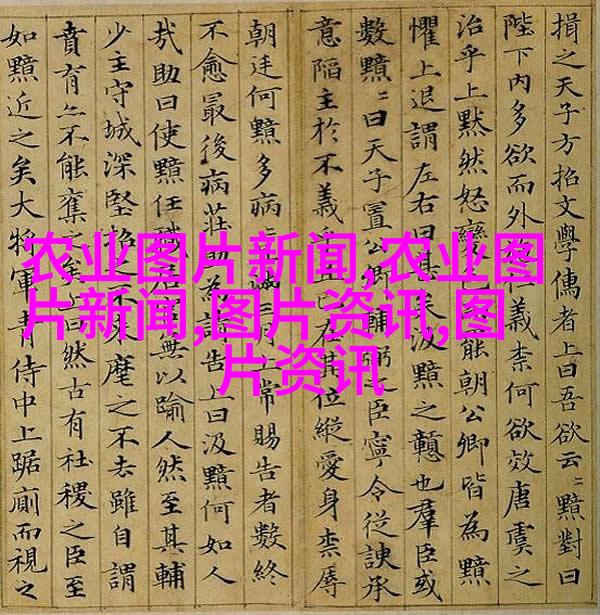 农业图片新闻,农业图
片新闻,图片资讯,图
片资讯
揖之天子方招文學儒者上曰吾欲云〻黯對曰
陛下內多欲而外仁義柰何欲效唐虞之
治乎上黙然怒變色能朝公卿皆為黯
懼上退謂左右曰甚矣汲黯之戇也羣臣或
數黯〻曰天子置公卿輔弼之臣寧令從諛承
意陷主於不義乎且已在其位縱愛身柰辱
朝廷何黯多病〻滿三月上常賜告者數終
不愈最後病莊助為請告上曰汲黯何如人
㢤助曰使黯任職居官無以踰人然至其輔
少主守城深堅招之不來麾之不去雖自謂
賁育亦不能奪之矣上曰然古有社稷之臣至
如黯近之矣大將軍青侍中上踞廁而視之